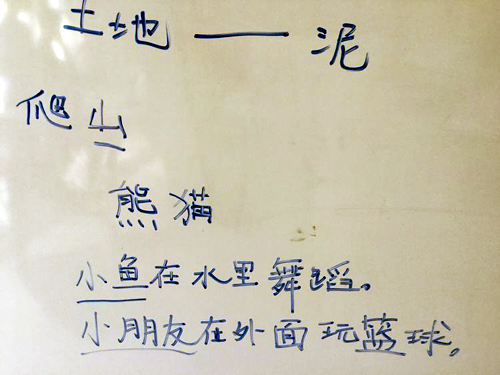 土地 —— 泥
爬山
熊猫
小鱼在水里舞蹈。
小朋友在外面玩篮球。